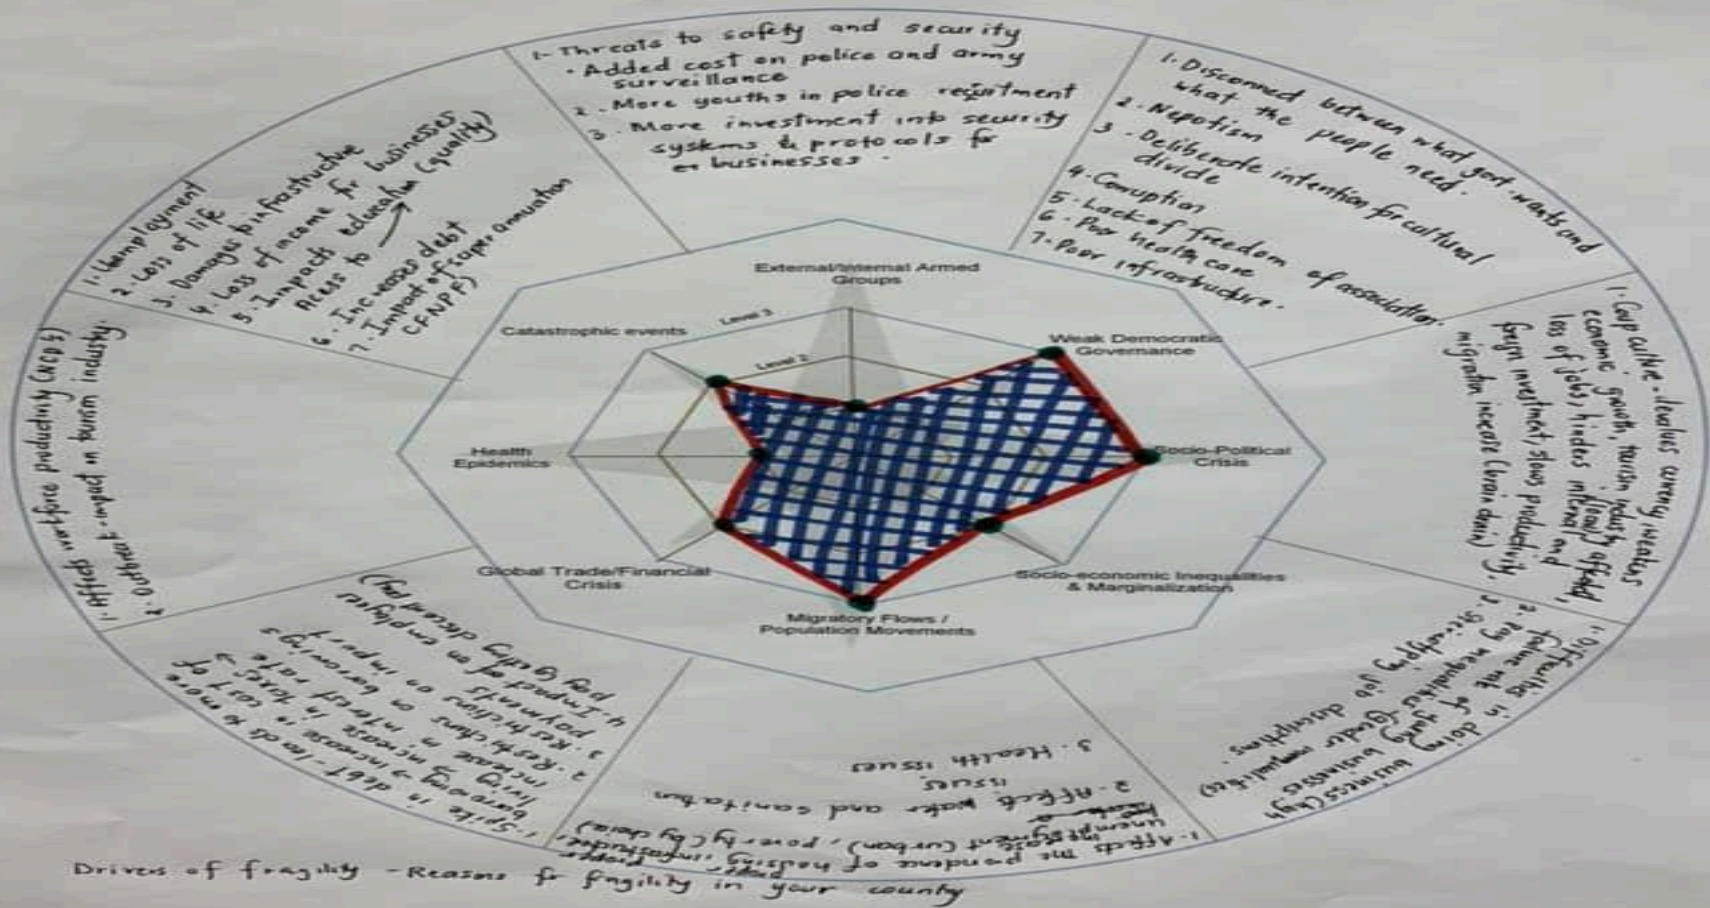 1- Threats to safety and security
• Added cost on police and army
surveillance
2. More youths in police
3. More investment into security
systems & protocols for
businesses.
1. Disconnect between what govt. wants and
what the people need.
2. Nepotism
3. Deliberate intention for cultural
divide
4. Corruption
5. Lack of freedom of association.
6. Poor health care
7. Poor infrastructure.
1. Coup culture - devalues currency, weakens
economic growth, tourism industry affected,
loss of jobs, hinders internal and
foreign investment, slows productivity.
migration increase (brain drain).
1. Difficulties in doing business (high
failure rate of young businesses
2. Pay inequalities (Gender inequalities)
3. job descriptions.
1. Affects the of housing, infrastructure,
unemployment (urban), poverty (by choice)
2. Affects water and sanitation
issues.
3. Health issues
1. Spike in debt - leads to more
borrowing → increase in cost of
living, increase in taxes →
increase in interest rate
2. Restrictions on borrowings
3. Restrictions on import
payments
4. Impact of on employee
pay (getting pay)
1. Affects workforce productivity (NCDs)
2. Outbreak - impact on tourism industry.
1. Unemployment
2. Loss of life
3. Damages to infrastructure
4. Loss of income for businesses
5. Impacts education (quality)
Access to
6. Increases debt
7. Impact of superannuation
(FNPF)
External/Internal Armed
Groups
Catastrophic events
Level 3
Level 2
Weak Democratic
Governance
Health
Epidemics
Socio-Political
Crisis
Global Trade/Financial
Crisis
Socio-economic Inequalities
& Marginalization
Migratory Flows /
Population Movements
Drivers of fragility - Reasons for fragility in your county